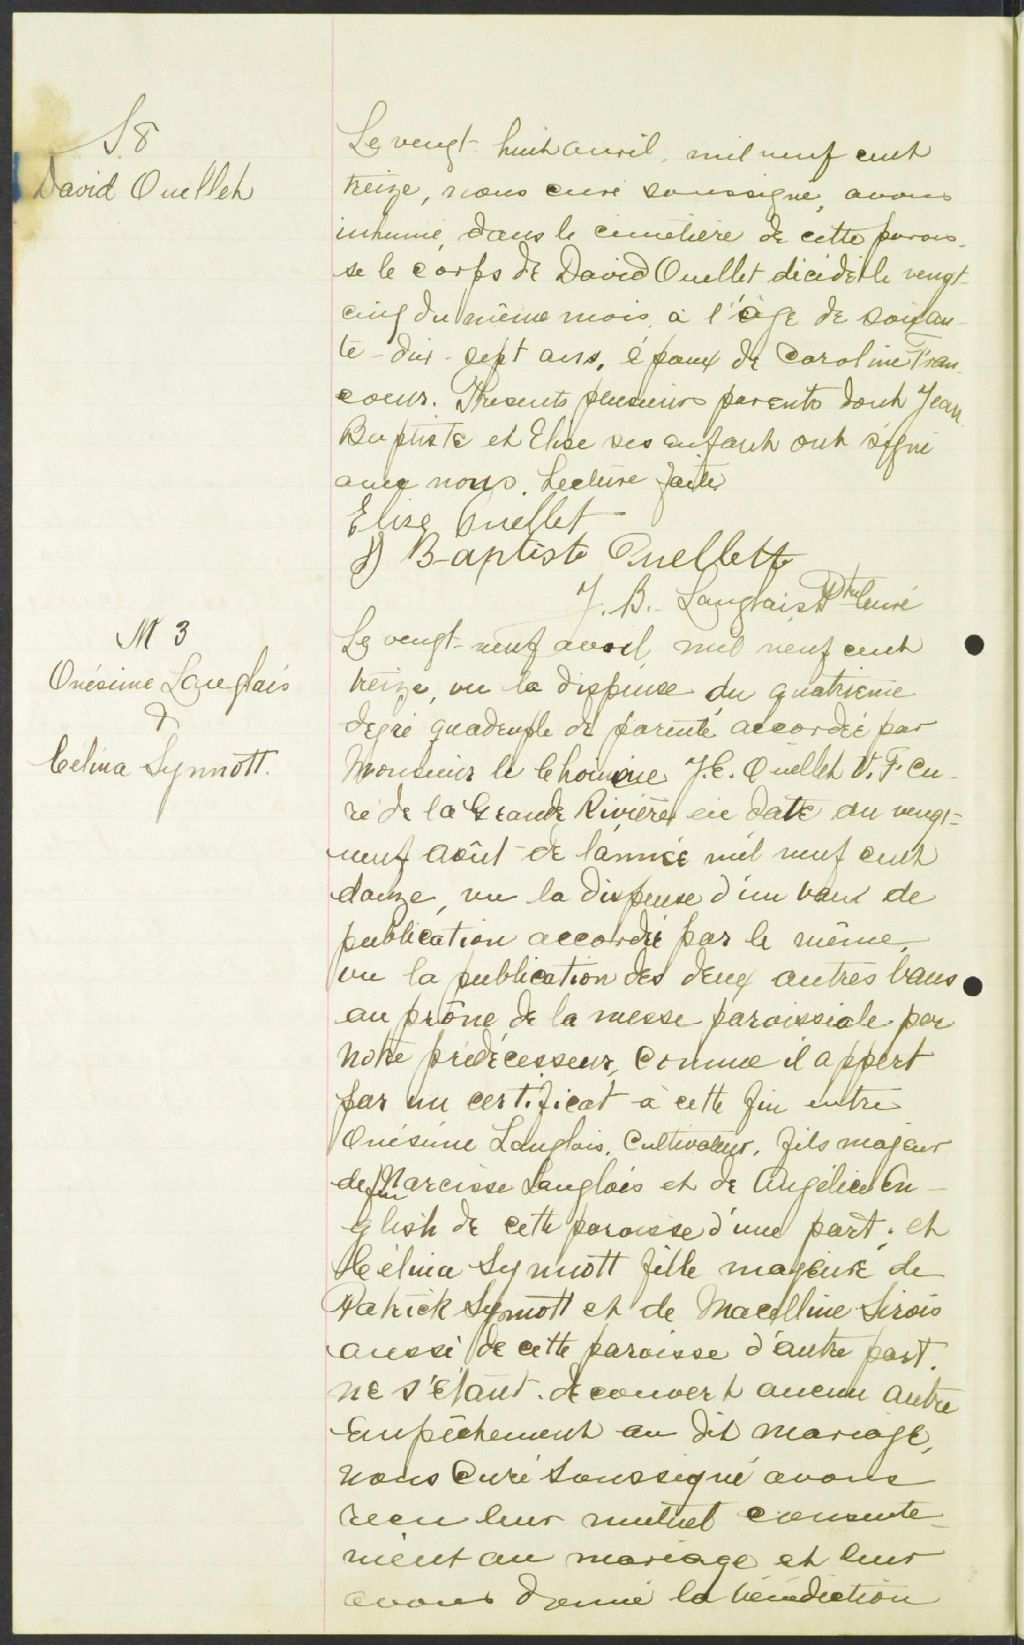 S 8
David Ouellet
Le vengt-huit avril, mil neuf cent
treize, nous curé soussigné, avons
inhumé, dans le cimetière de cette parois-
se le corps de David Ouellet décédé le vengt-
cinq du même mois, à l'âge de soixan-
te-dix-sept ans, époux de Caroline Fran-
coeur. Présents plusieurs parents dont Jean
Baptiste et Elise ses enfants ont signé
avec nous. Lecture faite
Elise Ouellet
J Baptiste Ouellette
J. B. Langlais Ptre Curé
M 3
Onésime Langlais
&
Célina Synnott.
Le vengt-neuf avril mil neuf cent
treize, vu la dispense du quatrième
degré quadruple de parenté accordée par
Monsieur le Chanoine J.E. Ouellet V. F. Cu-
ré de la Grande Rivière en date du vengt-
neuf août de l'année mil neuf cent
douze, vu la dispense d'un ban de
publication accordé par le même,
vu la publication des deux autres bans
au prône de la messe paroissiale par
notre prédécesseur, comme il appert
par un certificat à cette fin entre
Onésime Langlois, Cultivateur, fils majeur
de Narcisse Langlois et de Angélice En-
glish de cette paroisse d'une part; et
Célina Synnott fille majeure de
Patrick Synnott et de Macelline Sirois
aussi de cette paroisse d'autre part.
ne s'étant découvert aucun autre
empêchement au dit mariage,
nous Curé soussigné avons
reçu leur mutuel consente-
ment au mariage et leur
avons donné la bénédiction